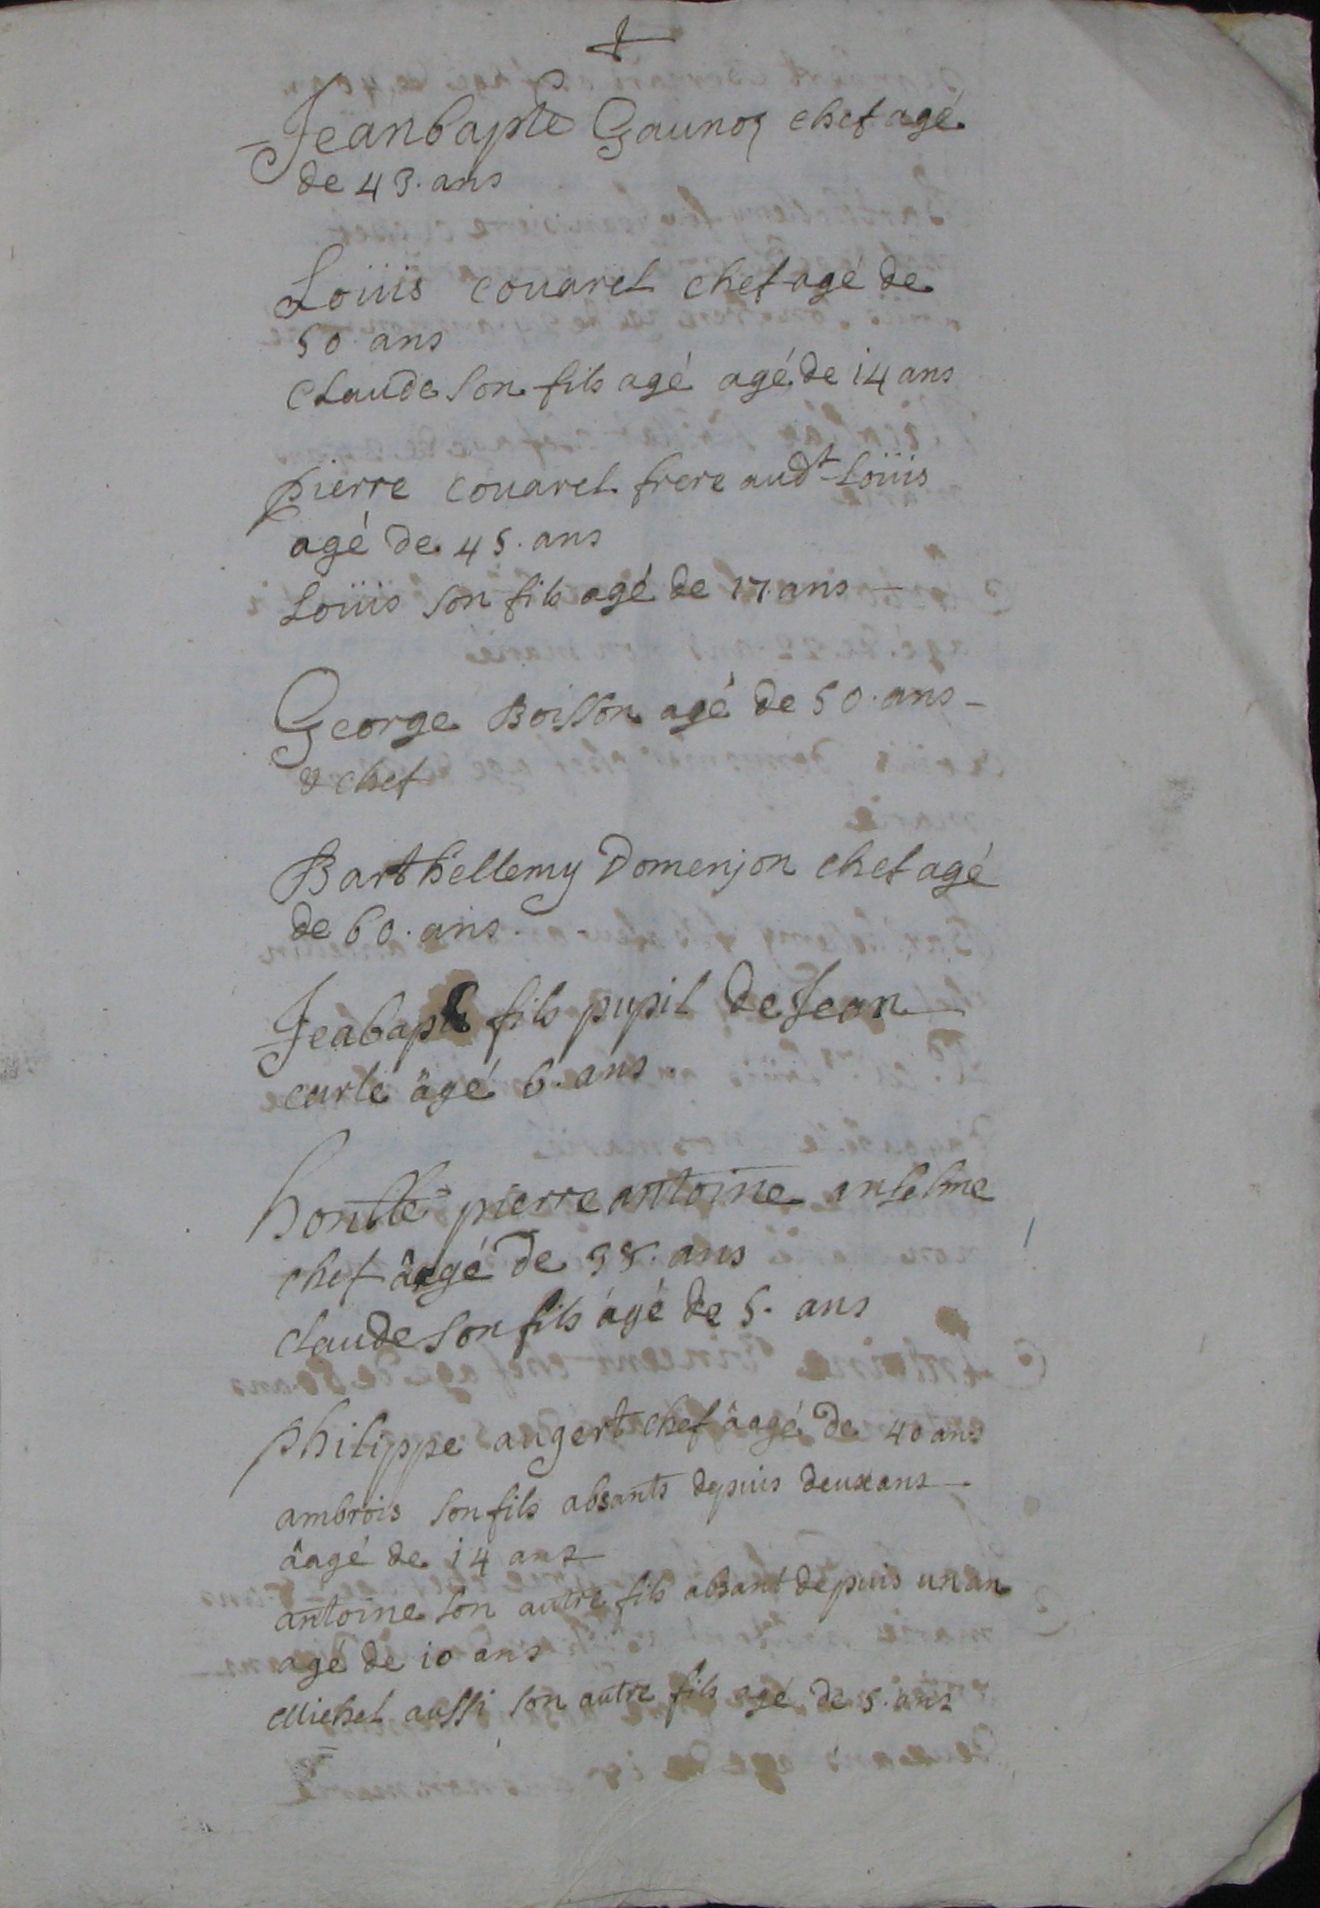 Jeanbapte Gaunoz chef agé
de 43. ans
Loüis couarel chef agé de
50 ans
Claude son fils agé agé de 14 ans
pierre couarel frere aud.t Loüis
agé de 45. ans
Loüis son fils agé de 17. ans
George Boisson agé de 50. ans
& chef
Barthellemy Domenjon chef agé
de 60. ans.
Jeabapte fils pupil de Jean
curte âgé 6. ans
honble pierre antoine anselme
chef âgé de 38. ans
claude son fils âgé de 5. ans
philippe augert chef âagé de 40 ans
ambrois son fils absants depuis deux ans
âagé de 14 ans
antoine son autre fils absant depuis un an
agé de 10 ans
Michel aussi son autre fils agé de 5. ans